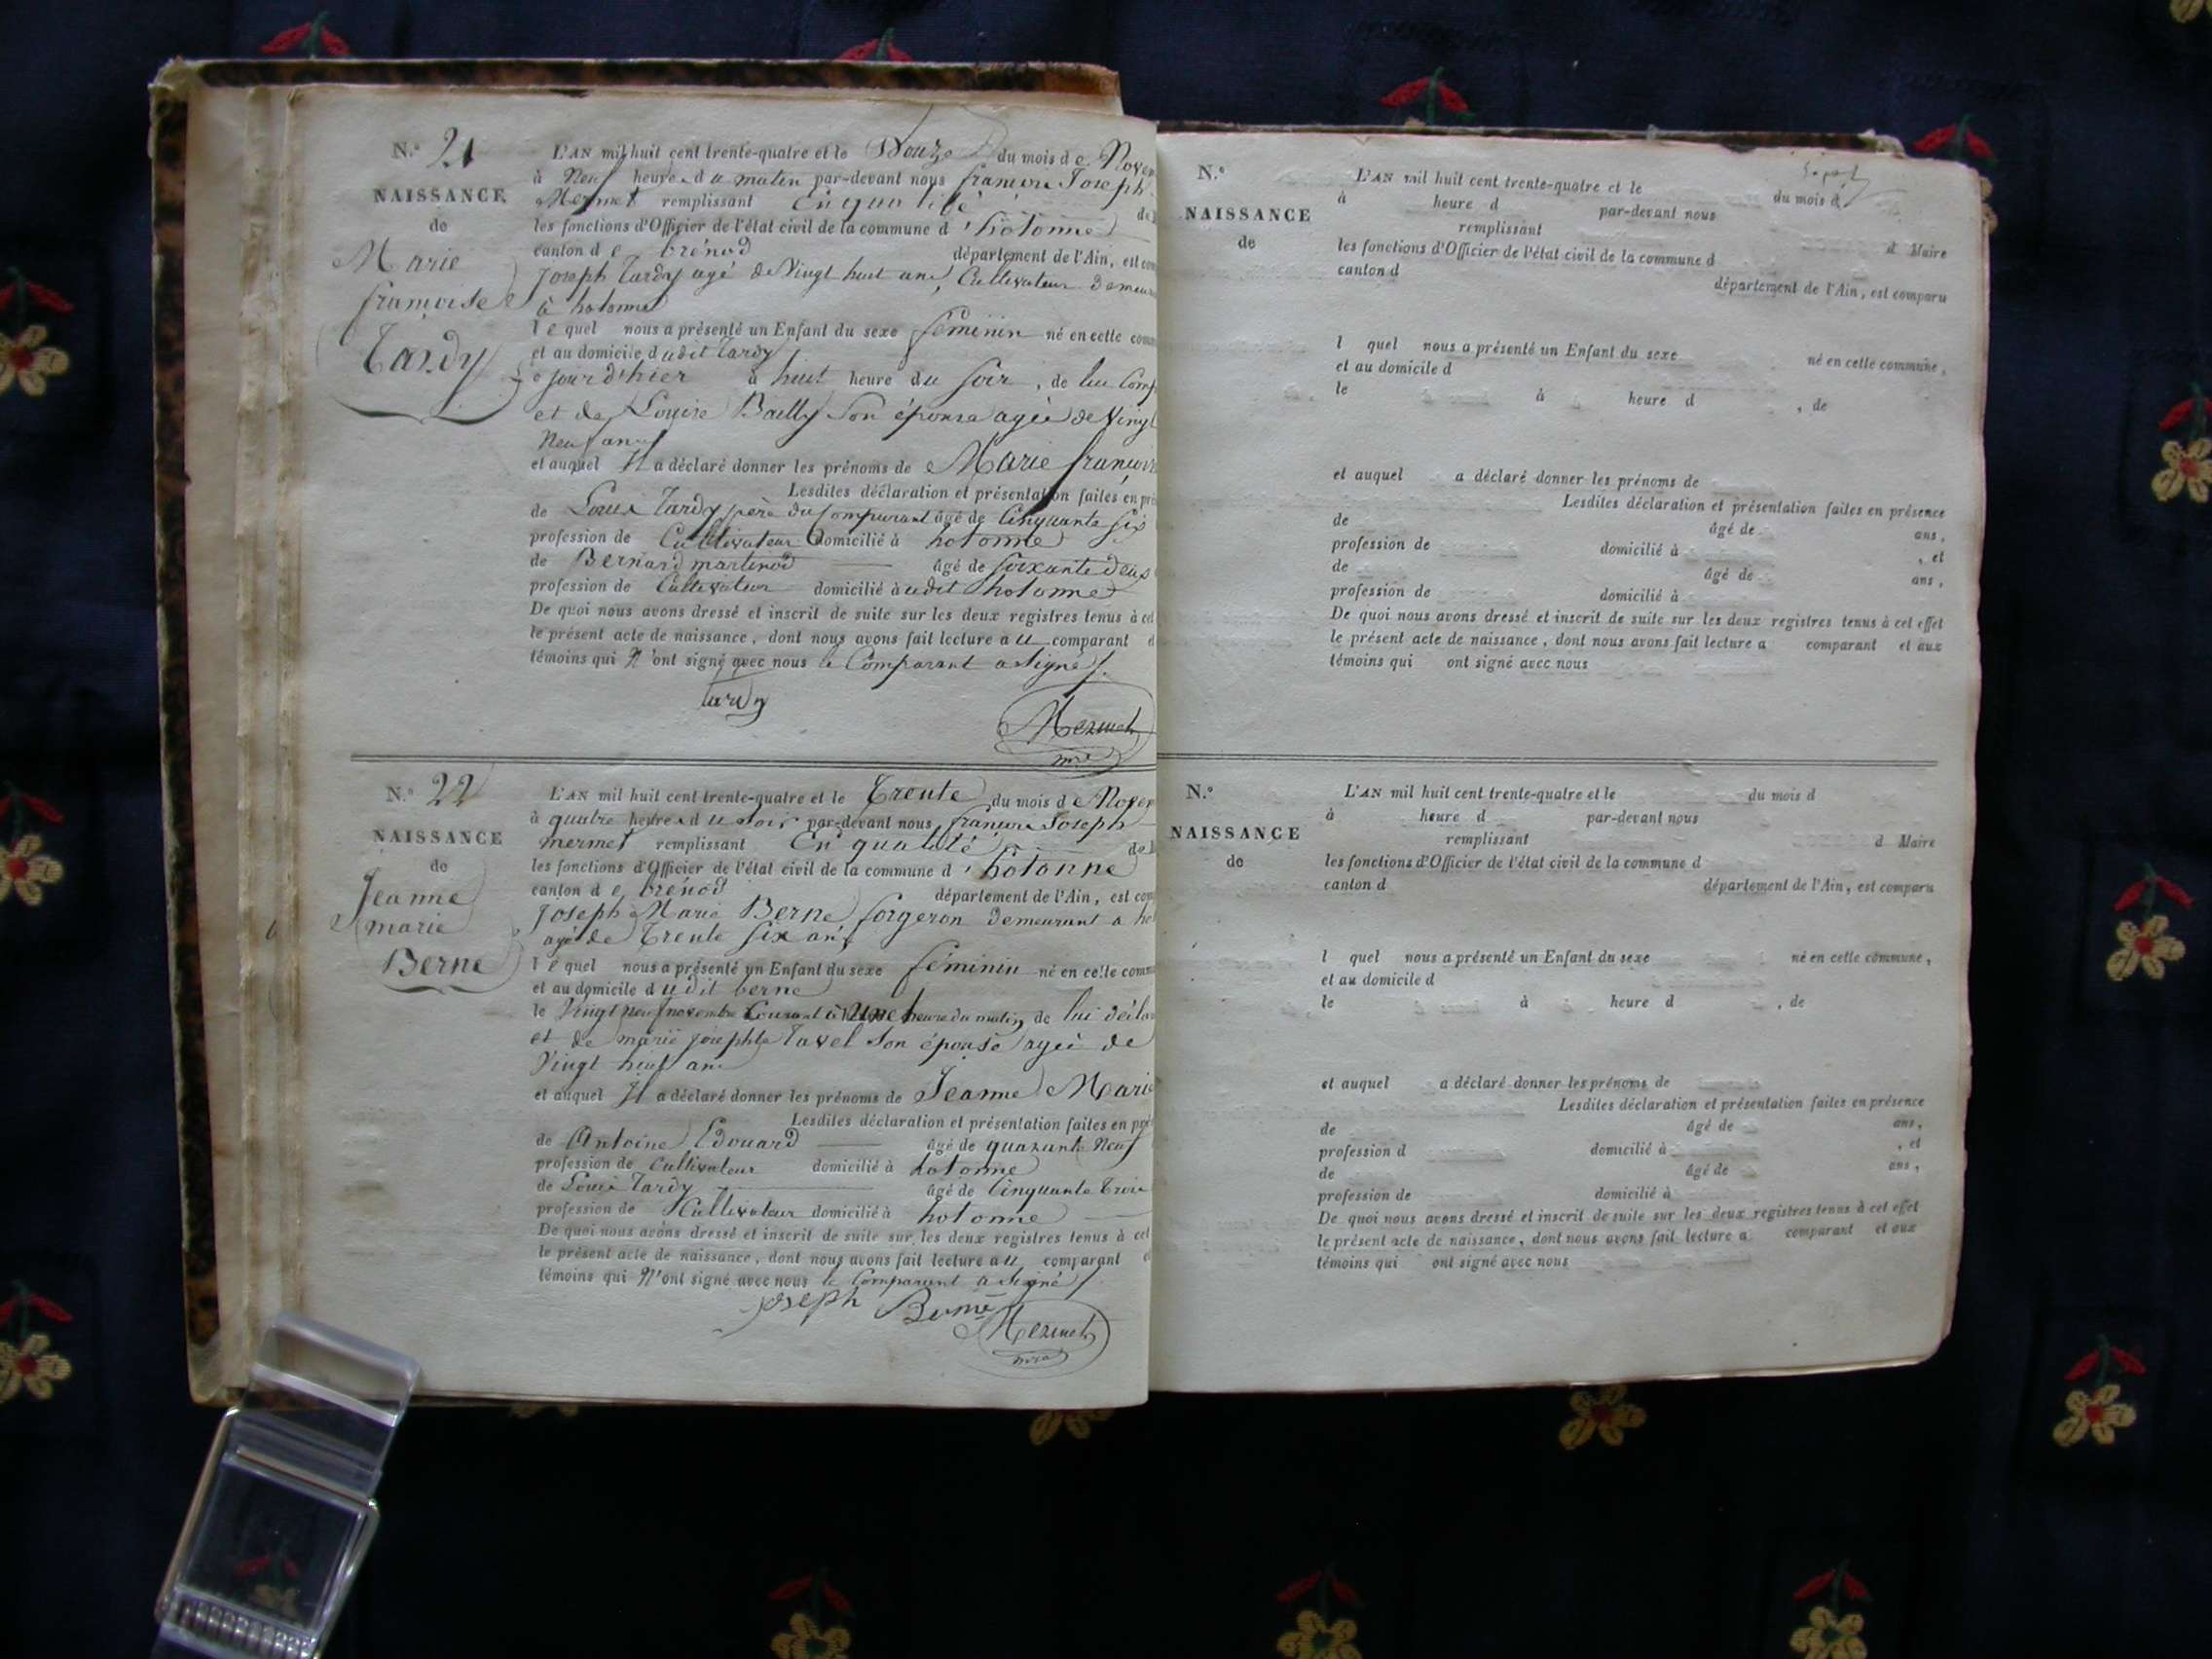 N.° 21
NAISSANCE
de
Marie
françoise
Tardy
L'AN mil huit cent trente-quatre et le Douze du mois de Novem
à Neuf heure du matin par-devant nous françois Joseph
Mermet remplissant En qualité de
les fonctions d'Officier de l'état civil de la commune d'hotonne
canton de brénod département de l'Ain, est com
Joseph Tardy agé de Vingt huit ans, Cultivateur demeu
à hotonne
lequel nous a présenté un Enfant du sexe féminin né en cette com
et au domicile dudit Tardy
le jour d'hier à huit heure du soir, de lui Comp
et de Louise Bailly Son épouse agée de Vingt
Neuf ans
et auquel Il a déclaré donner les prénoms de Marie françoise
Lesdites déclaration et présentation faites en pré
de Louis Tardy père du Comparant âgé de Cinquante six
profession de Cultivateur domicilié à hotonne
de Bernard martinod âgé de soixante deux
profession de Cultivateur domicilié audit hotonne
De quoi nous avons dressé et inscrit de suite sur les deux registres tenus à cet
le présent acte de naissance, dont nous avons fait lecture au comparant e
témoins qui N'ont signé avec nous le Comparant a signé
Tardy
Mermet
mre
N.° 22
NAISSANCE
de
Jeanne
marie
Berne
L'AN mil huit cent trente-quatre et le Trente du mois de Novem
à quatre heure du soir par-devant nous françois Joseph
mermet remplissant En qualité de
les fonctions d'Officier de l'état civil de la commune d'hotonne
canton de brénod département de l'Ain, est com
Joseph Marie Berne forgeron demeurant a ho
agé de Trente Six ans
lequel nous a présenté un Enfant du sexe féminin né en cette comm
et au domicile dudit berne
le Vingt neuf novembre Courant à Une heure du matin, de lui décla
et de marie josephte Tavel Son épouse agée de
Vingt huit ans
et auquel Il a déclaré donner les prénoms de Jeanne Marie
Lesdites déclaration et présentation faites en pré
de Antoine Edouard âgé de quarante Neuf
profession de Cultivateur domicilié à hotonne
de Louis Tardy âgé de Cinquante Trois
profession de Cultivateur domicilié à hotonne
De quoi nous avons dressé et inscrit de suite sur les deux registres tenus à cet
le présent acte de naissance, dont nous avons fait lecture au comparant e
témoins qui N'ont signé avec nous le Comparant a signé
joseph Berne
Mermet
mre
N.°
NAISSANCE
de
L'AN mil huit cent trente-quatre et le du mois d
à heure d par-devant nous
remplissant d Maire
les fonctions d'Officier de l'état civil de la commune d
canton d département de l'Ain, est comparu
l quel nous a présenté un Enfant du sexe né en cette commune,
et au domicile d
le à heure d , de
et auquel a déclaré donner les prénoms de
Lesdites déclaration et présentation faites en présence
de âgé de ans,
profession de domicilié à , et
de âgé de ans,
profession de domicilié à
De quoi nous avons dressé et inscrit de suite sur les deux registres tenus à cet effet
le présent acte de naissance, dont nous avons fait lecture a comparant et aux
témoins qui ont signé avec nous
N.°
NAISSANCE
de
L'AN mil huit cent trente-quatre et le du mois d
à heure d par-devant nous
remplissant d Maire
les fonctions d'Officier de l'état civil de la commune d
canton d département de l'Ain, est comparu
l quel nous a présenté un Enfant du sexe né en cette commune,
et au domicile d
le à heure d , de
et auquel a déclaré donner les prénoms de
Lesdites déclaration et présentation faites en présence
de âgé de ans,
profession d domicilié à , et
de âgé de ans,
profession de domicilié à
De quoi nous avons dressé et inscrit de suite sur les deux registres tenus à cet effet
le présent acte de naissance, dont nous avons fait lecture a comparant et aux
témoins qui ont signé avec nous